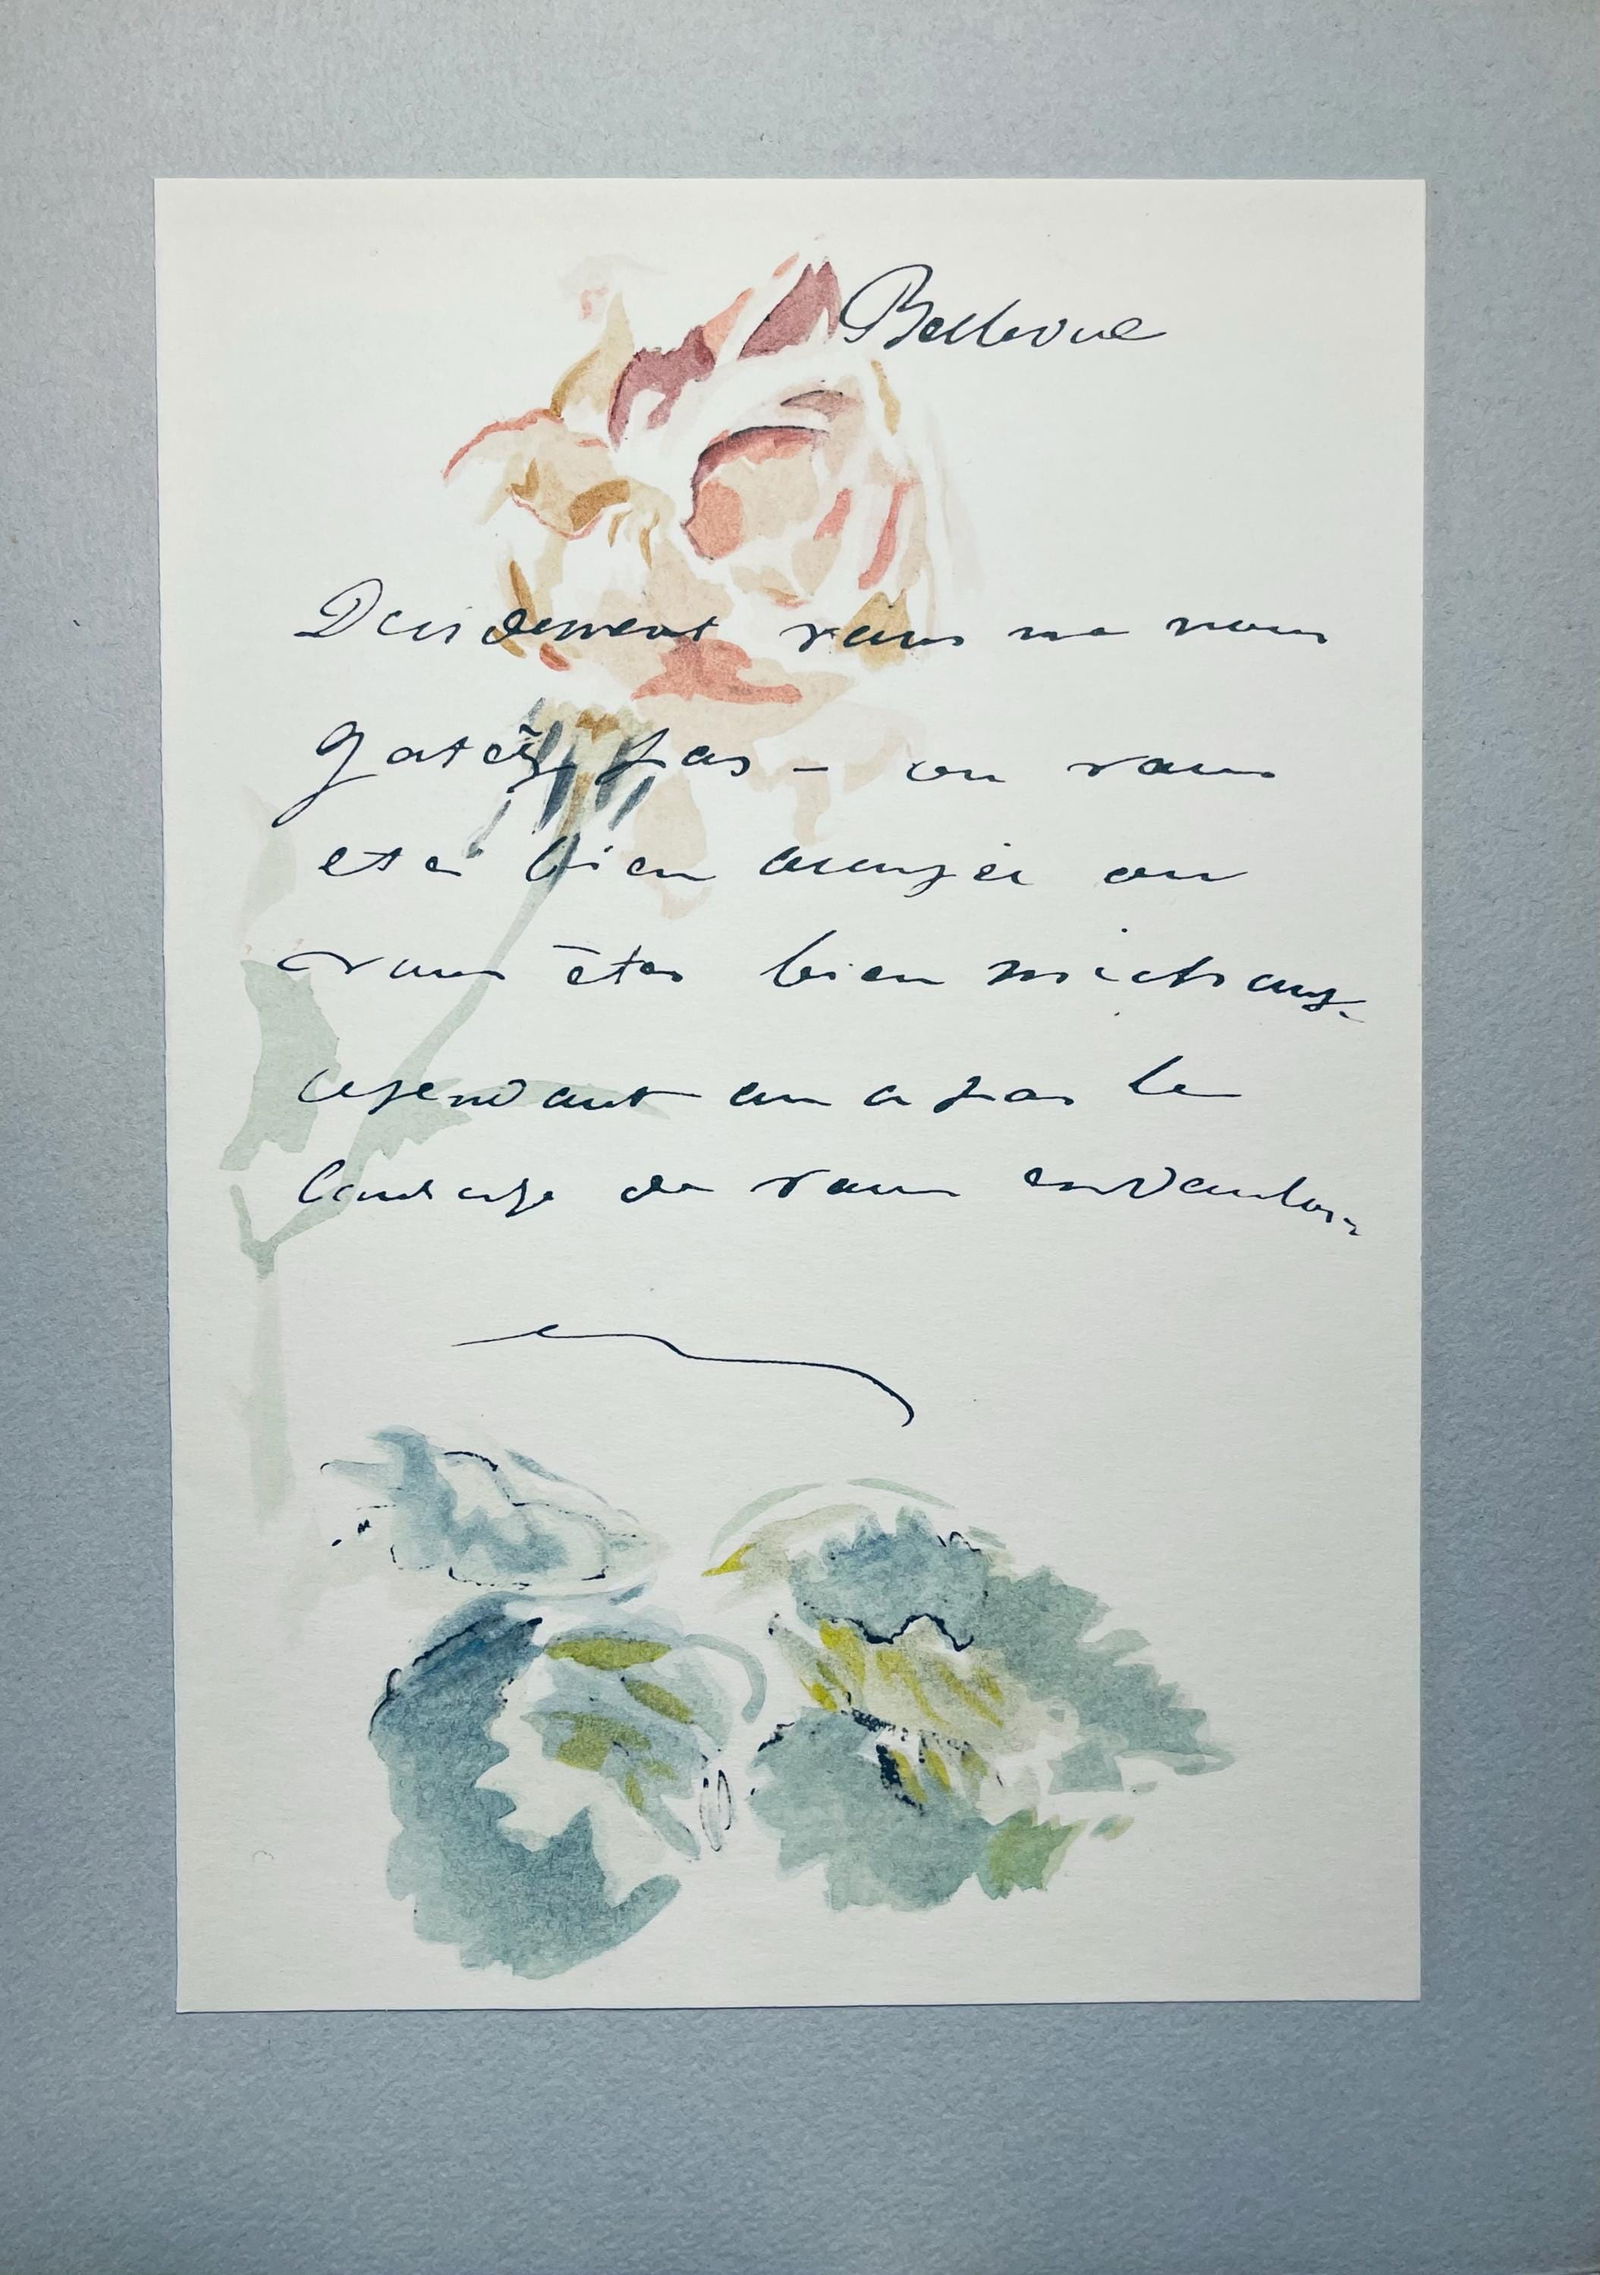 Bellevue
Decidement vous ne nous
gatez pas – ou vous
etes bien occupée ou
vous êtes bien méchante.
cependant on a pas le
courage de vous en vouloir.